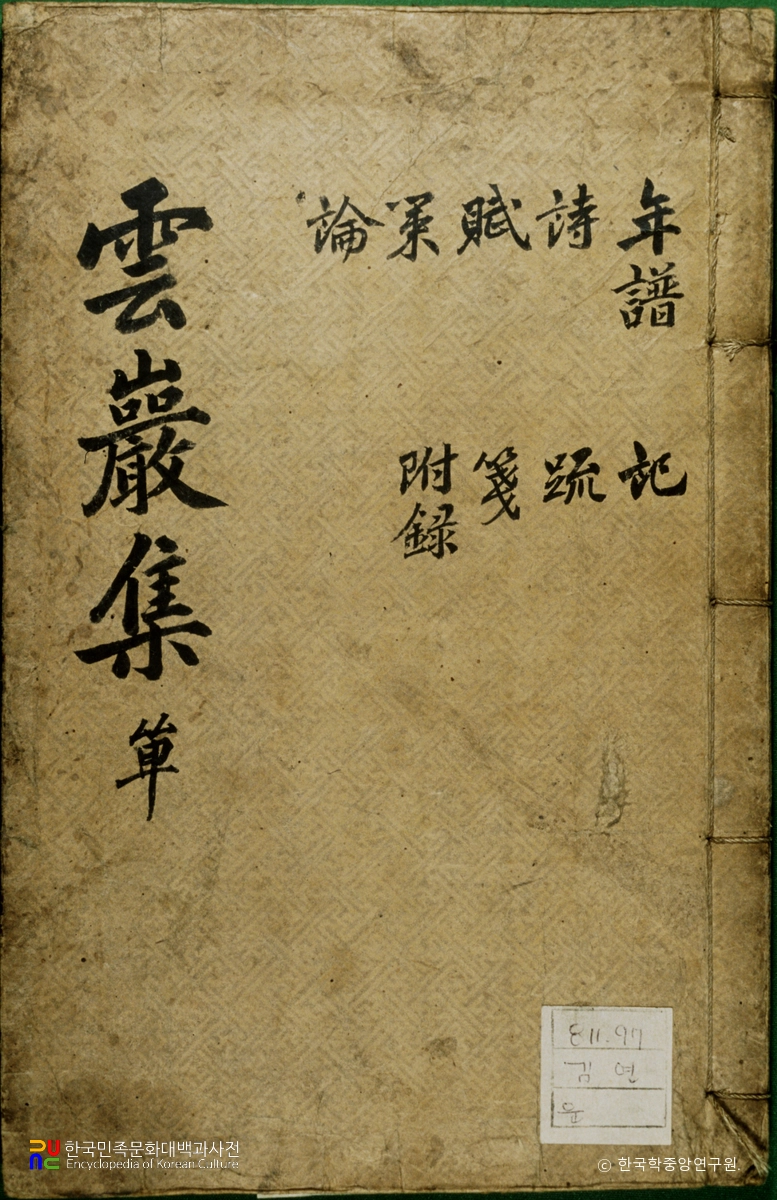 年譜
詩
賦
策
論
記
疏
箋
附録
雲巖集 單
811.97
김연
운
한국민족문화대백과사전
Encyclopedia of Korean Culture
© 한국학중앙연구원